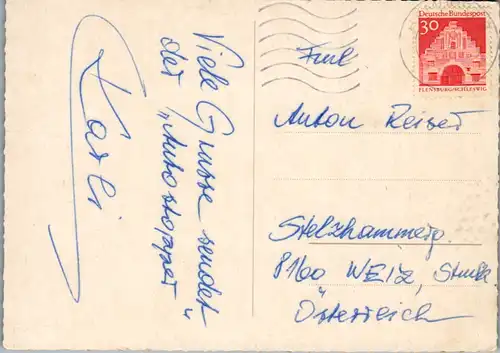 Viele Grüsse sendet
der „Autostopper“
Karli
Deutsche Bundespost
30
FLENSBURG/SCHLESWIG
Anton Reiser
Stelzhammerg.
8160 WEIZ,
Österreich